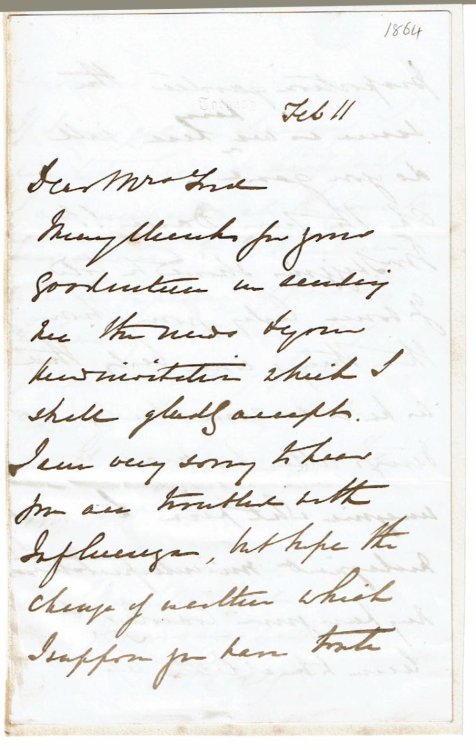 1864
Feb 11
Dear Mrs Ford
Many thanks for your
good nature in sending
me the news & your
kind invitation which I
shall gladly accept.
I am very sorry to hear
you are troubled with
Influenza, but hope the
change of weather which
I suppose you have